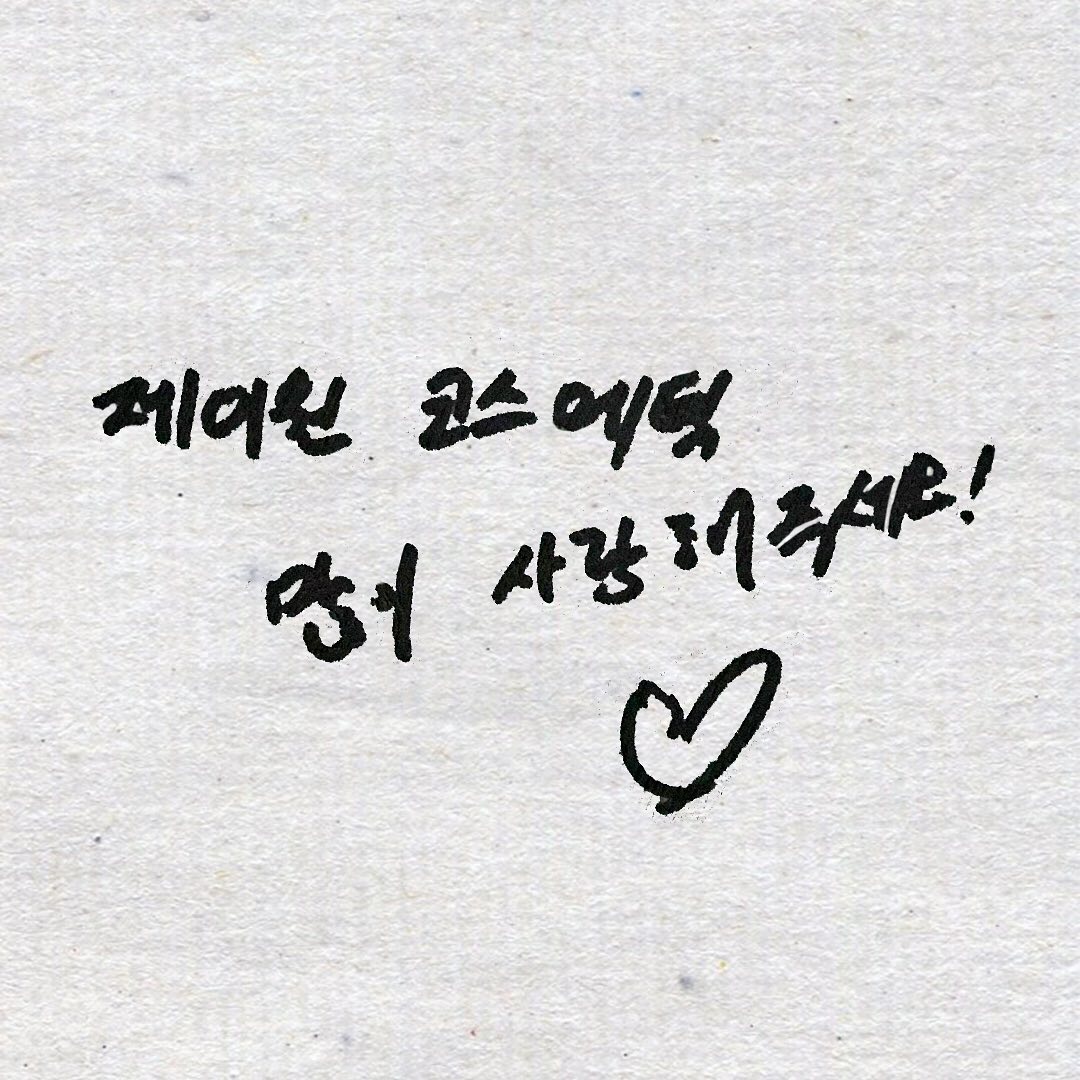 제이원 코스메틱
많이 사랑해주세요!